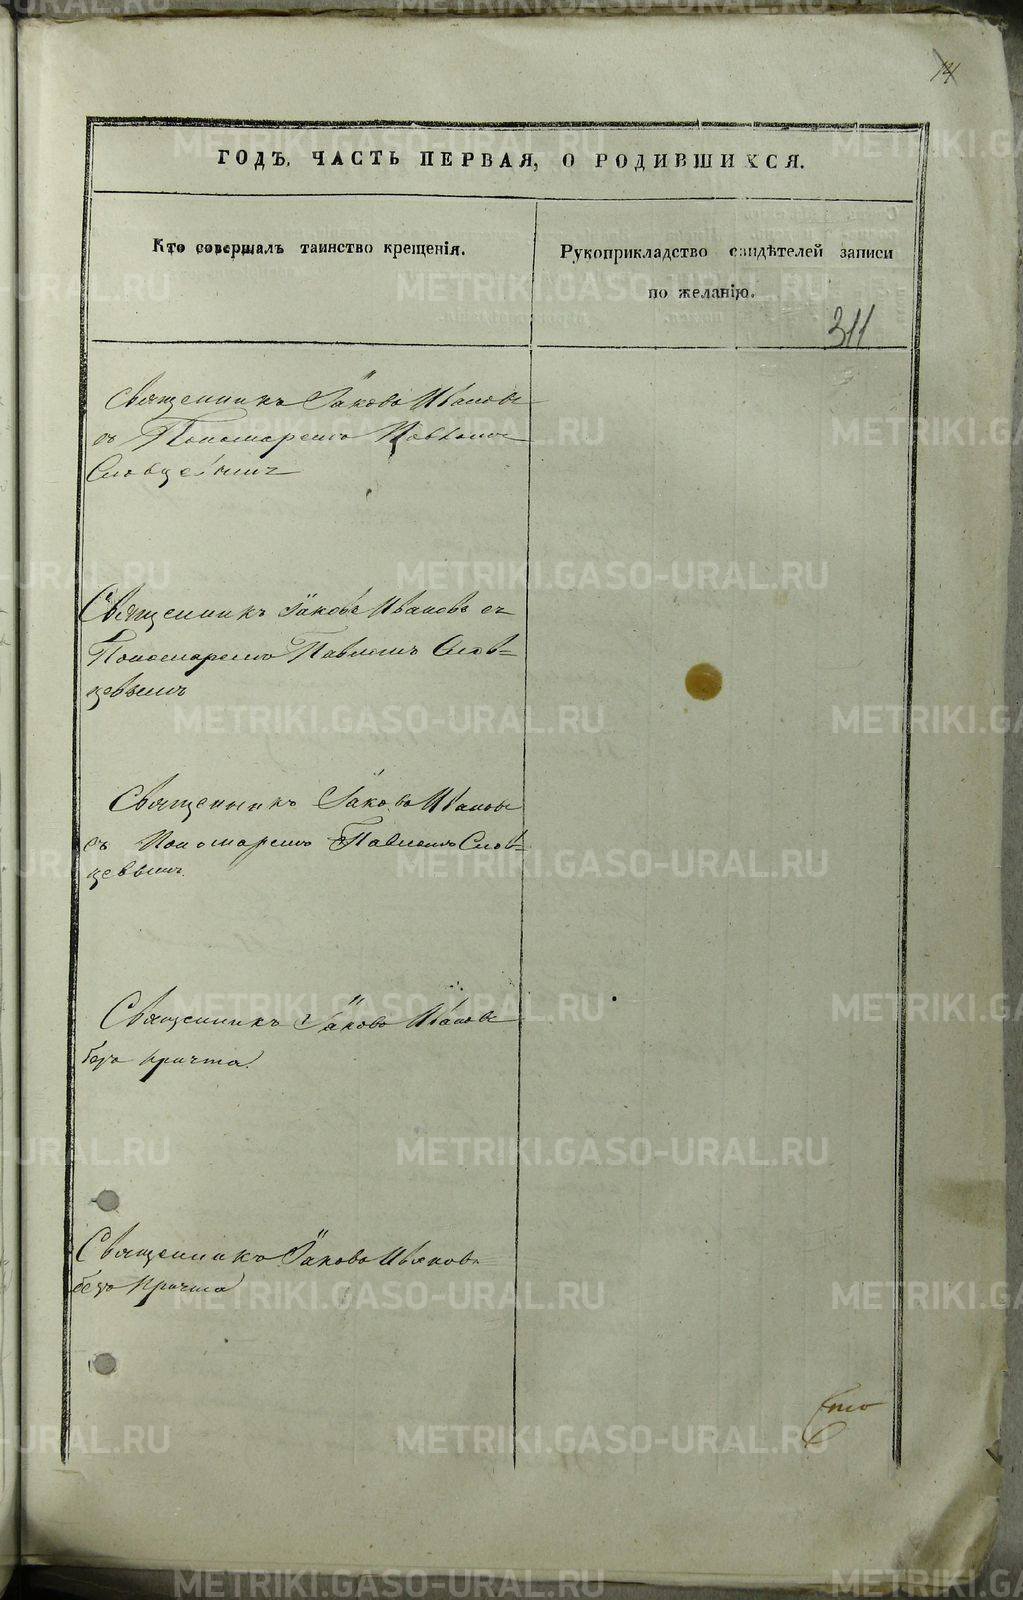 14
ГОДЪ, ЧАСТЬ ПЕРВАЯ, О РОДИВШИХСЯ.
Кто совершалъ таинство крещенія.
Рукоприкладство свидѣтелей записи
по желанію.
311
Священникъ Іаковъ Ивановъ
съ Пономаремъ Павломъ
Словцевымъ
Священникъ Іаковъ Ивановъ съ
Пономаремъ Павломъ Слов=
цевымъ
Священникъ Іаковъ Ивановъ
съ Пономаремъ Павломъ Слов=
цевымъ.
Священникъ Іаковъ Ивановъ
безъ причта.
Священникъ Іаковъ Ивановъ
безъ Причта
METRIKI.GASO-URAL.RU